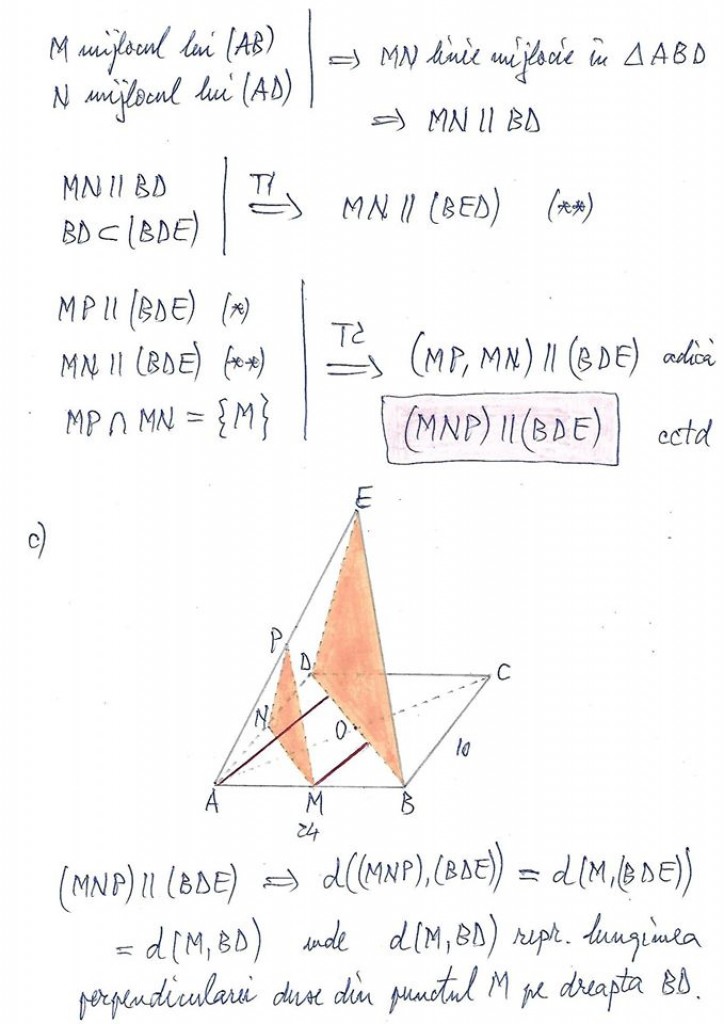 M mijlocul lui (AB) ⇒ MN linie mijlocie în △ABD
N mijlocul lui (AD)
⇒ MN || BD
MN || BD T1 ⇒ MN || (BED) (**)
BD ⊂ (BDE)
MP || (BDE) (*)
MN || (BDE) (**) T2 ⇒ (MP, MN) || (BDE) adică
MP ∩ MN = {M} (MNP) || (BDE) cctd
c)
E
P
D C
N O
10
A M B
24
(MNP) || (BDE) ⇒ d((MNP),(BDE)) = d(M,(BDE))
= d(M,BD) unde d(M,BD) repr. lungimea
perpendicularei duse din punctul M pe dreapta BD.